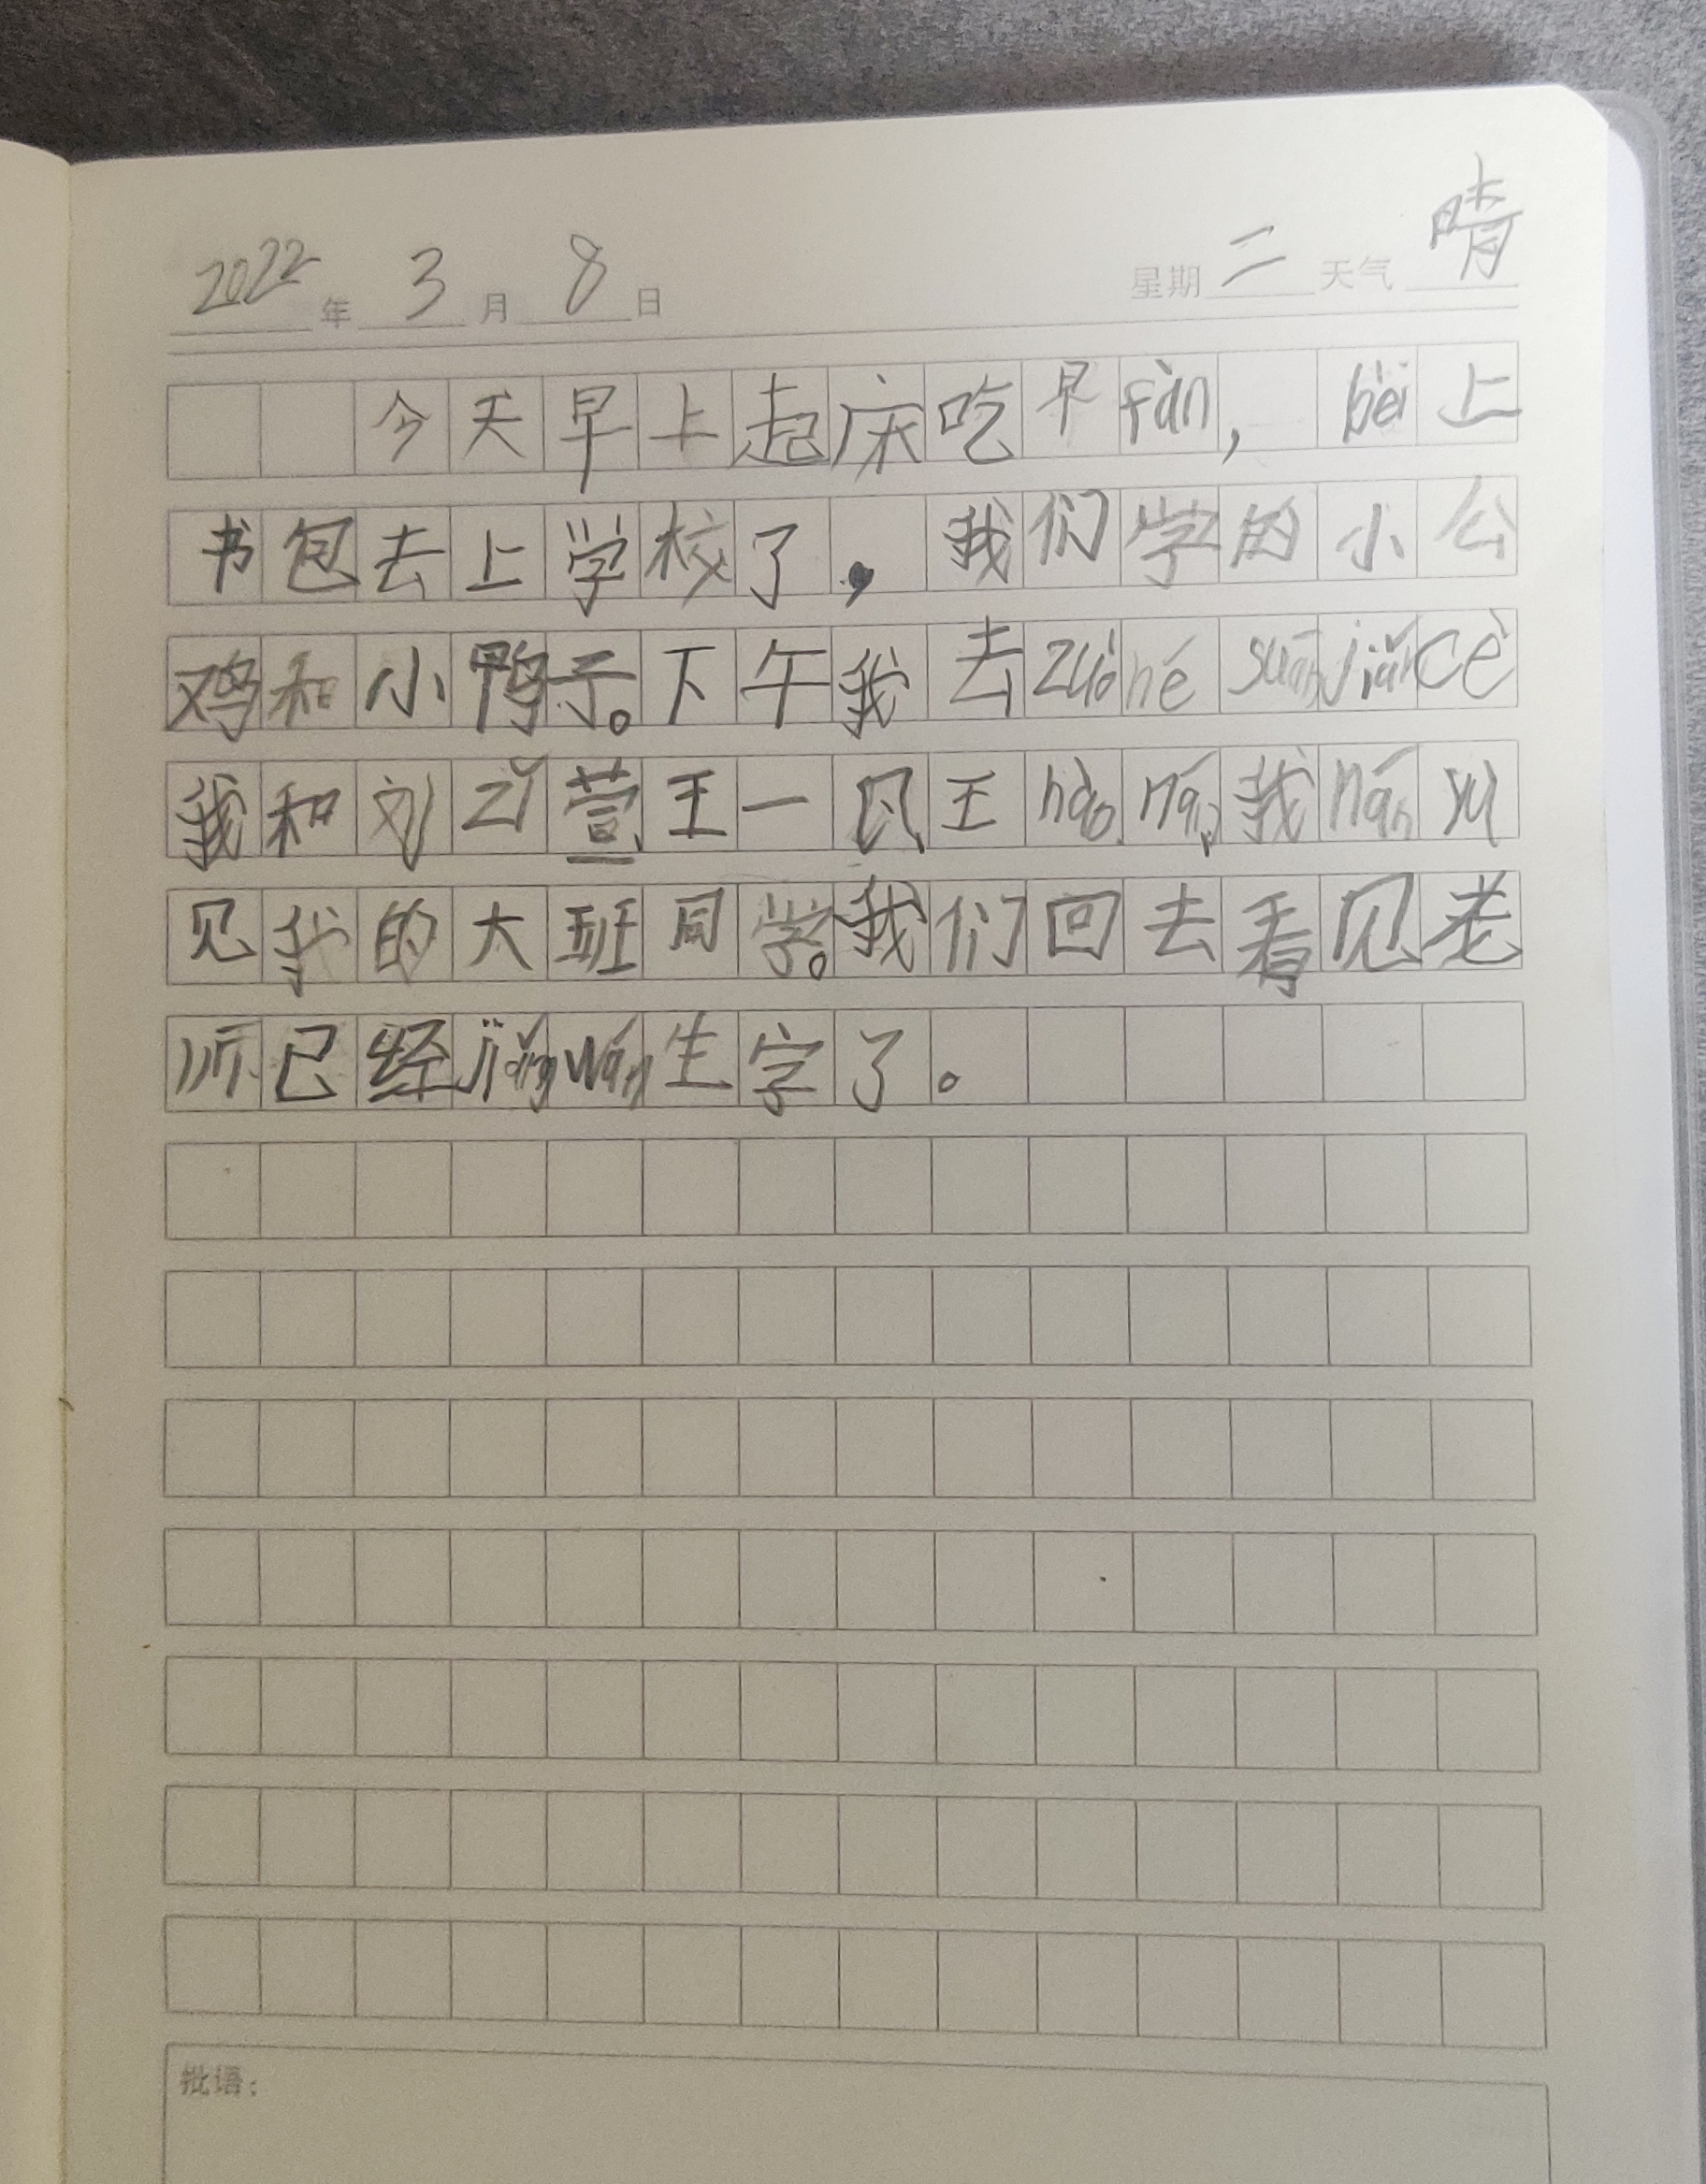 2022年3月8日 星期二 天气晴
今天早上起床吃早fàn，bèi上
书包去上学校了，我们学的小公
鸡和小鸭子。下午我去zuò hé suān jiǎn cè
我和刘zǐ萱王一凡王hào nán，我nán yù
见我的大班同学。我们回去看见老
师已经jiǎng wán生字了。
批语：